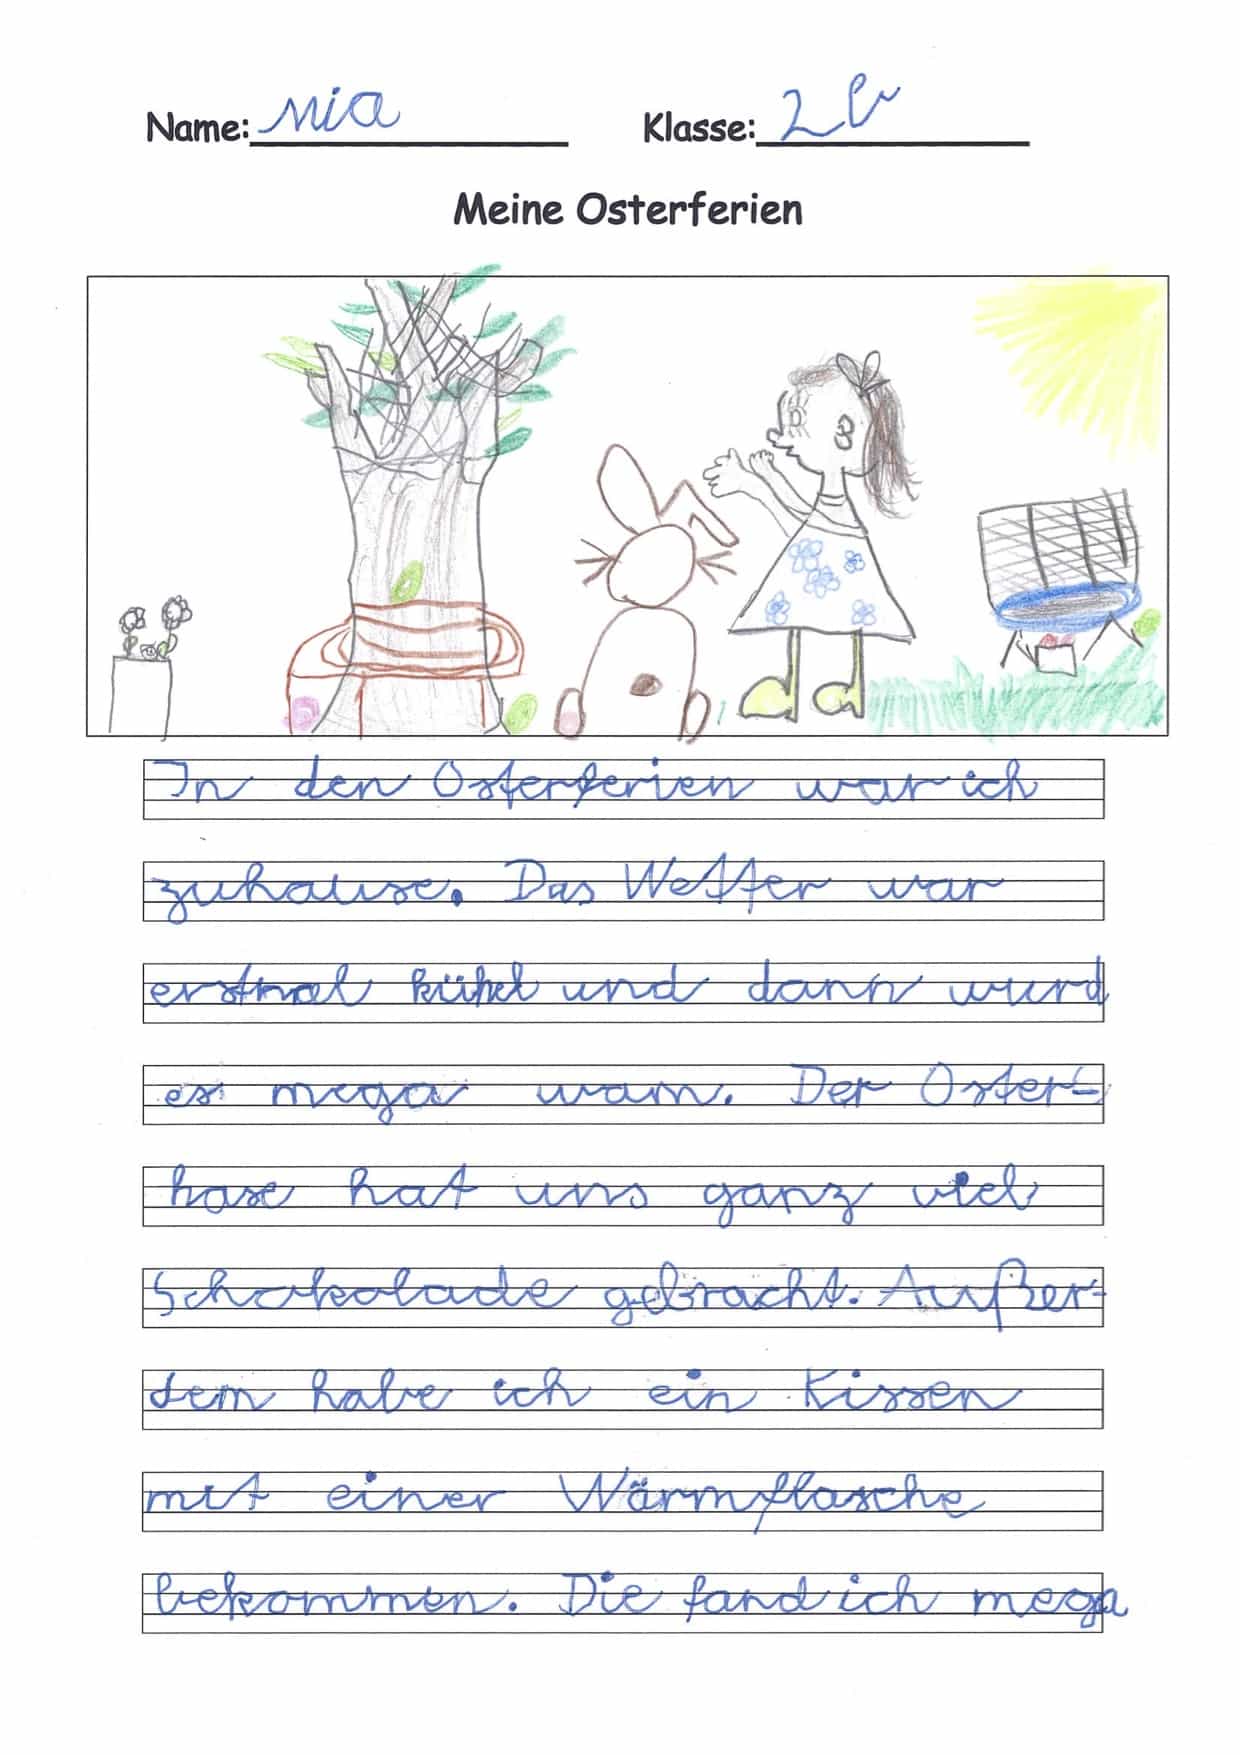 Name: Mia Klasse: 2b
Meine Osterferien
In den Osterferien war ich
zuhause. Das Wetter war
erstmal kühl und dann wurd
es mega wam. Der Oster-
hase hat uns ganz viel
Schokolade gebracht. Außer-
dem habe ich ein Kissen
mit einer Wärmflasche
bekommen. Die fand ich mega